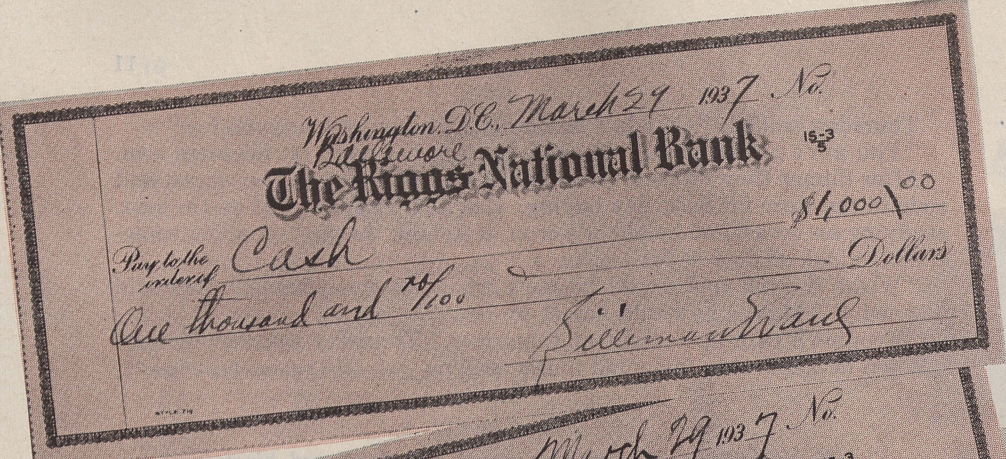 Washington, D.C., March 29 1937 No.
Baltimore
15-3
5
The Riggs National Bank
$1,000\00
Pay to the
order of Cash
One thousand and no/100 Dollars
Silliman Evans
STYLE 710
March 29 1937 No.